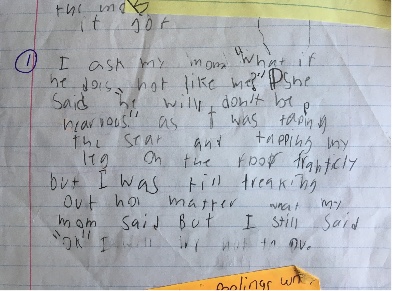 it got
1 I ask my mom "What if
he does not like me?" She
said "he will don't be
nearvous." as I was taping
the seat and tapping my
leg on the floor frantely
but I was still freaking
out not matter what my
mom said But I still said
"OK" I will try not to
feelings